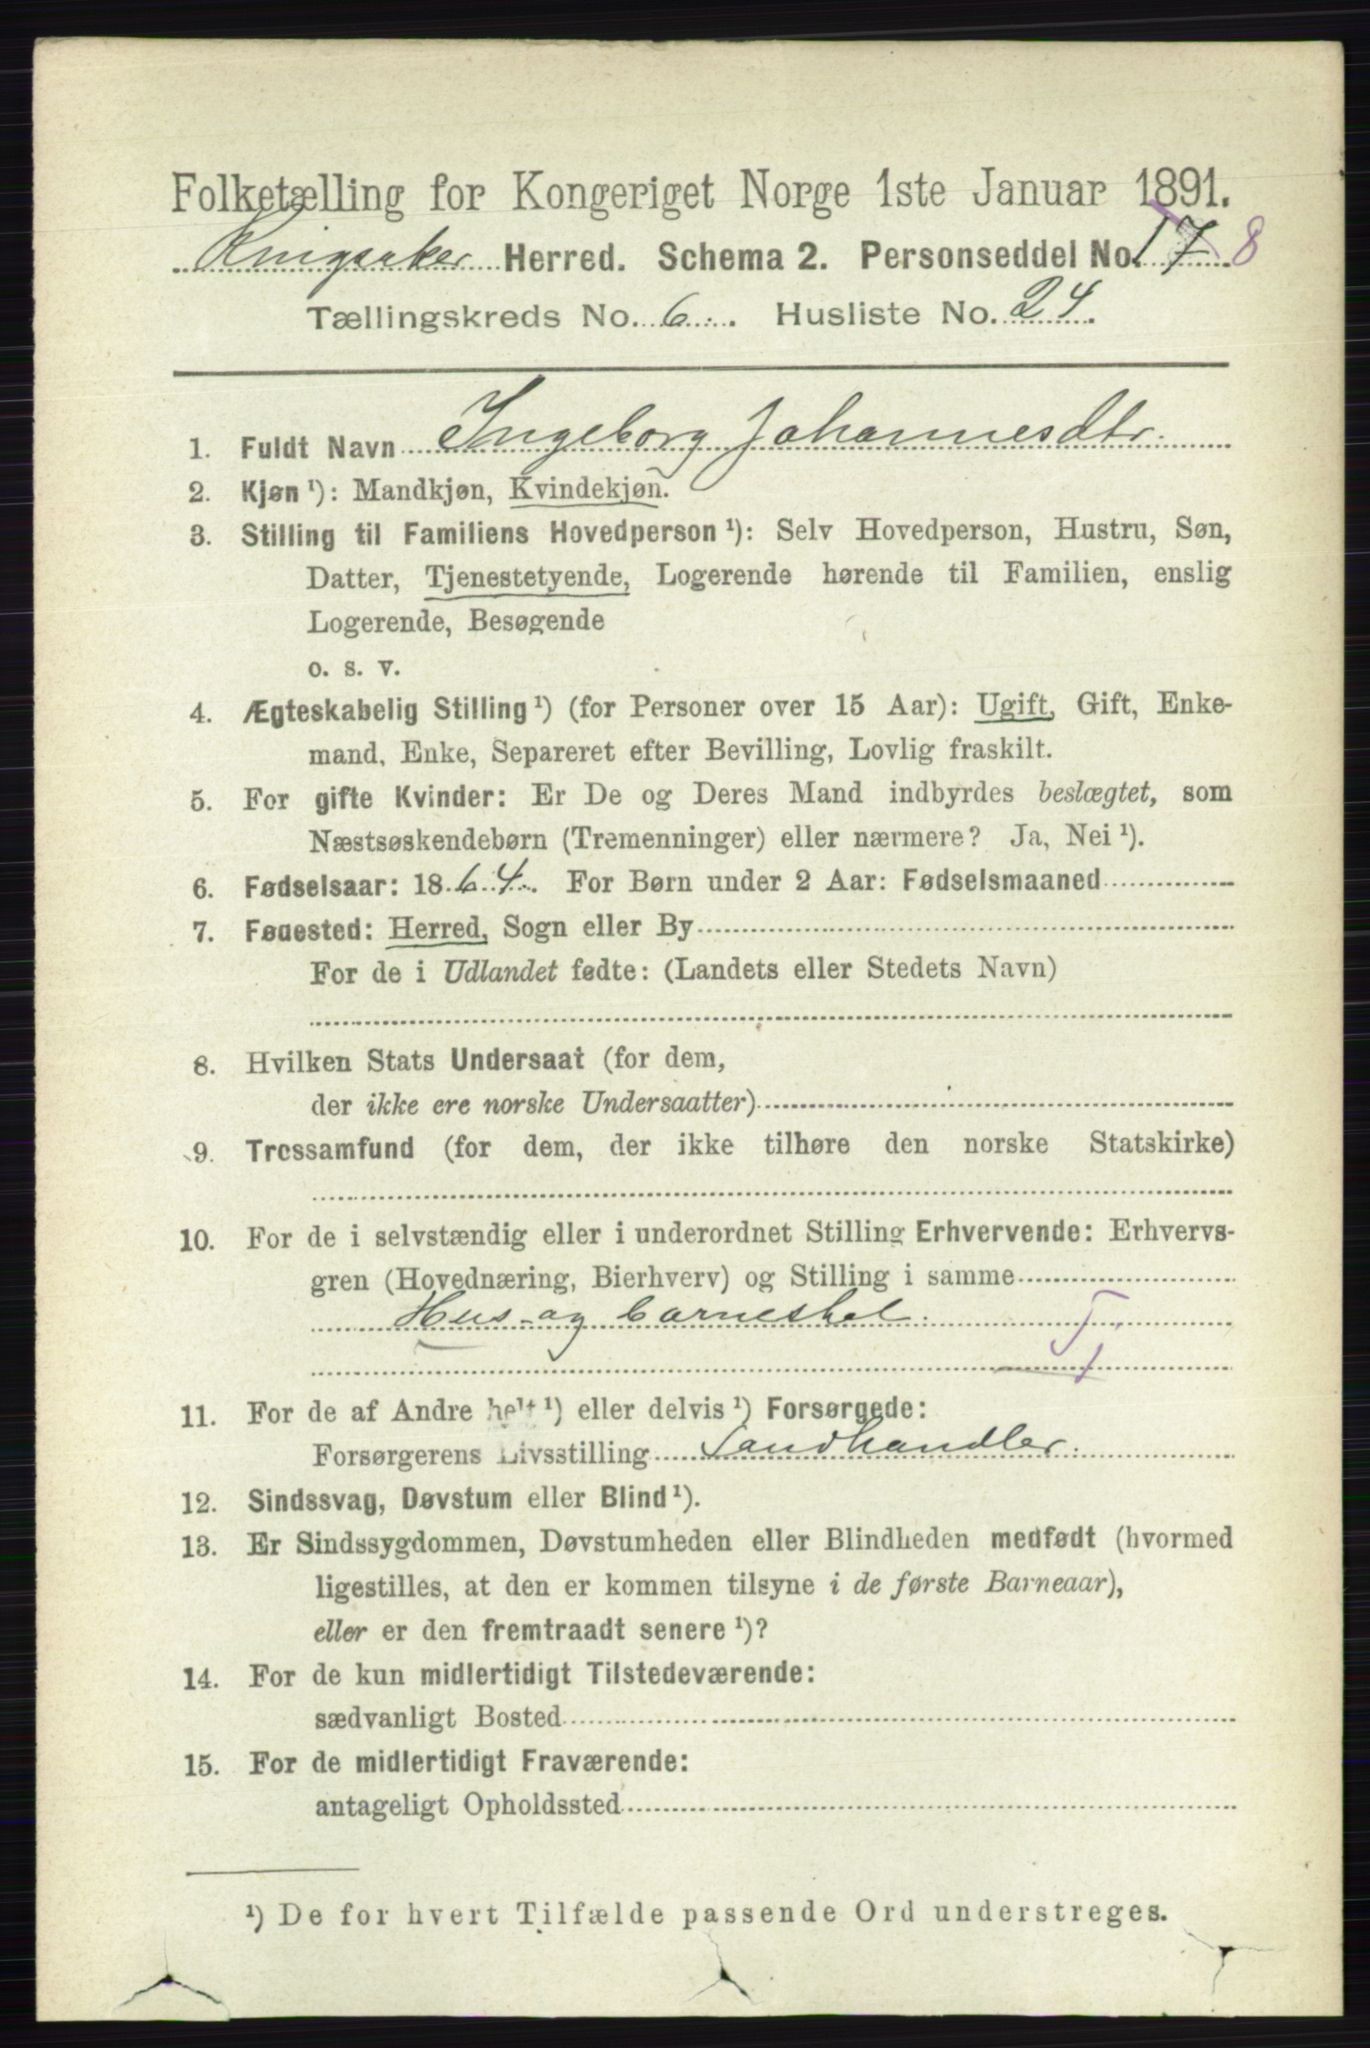 Folketælling for Kongeriget Norge 1ste Januar 1891.
Ringsaker Herred. Schema 2. Personseddel No. 17 8
Tællingskreds No. 6. Husliste No. 24.
1. Fuldt Navn Ingeborg Johannesdtr.
2. Kjøn ¹): Mandkjøn, Kvindekjøn.
3. Stilling til Familiens Hovedperson ¹): Selv Hovedperson, Hustru, Søn,
Datter, Tjenestetyende, Logerende hørende til Familien, enslig
Logerende, Besøgende
o. s. v.
4. Ægteskabelig Stilling ¹) (for Personer over 15 Aar): Ugift, Gift, Enke-
mand, Enke, Separeret efter Bevilling, Lovlig fraskilt.
5. For gifte Kvinder: Er De og Deres Mand indbyrdes beslægtet, som
Næstsøskendebørn (Tremenninger) eller nærmere? Ja, Nei ¹).
6. Fødselsaar: 1864. For Børn under 2 Aar: Fødselsmaaned
7. Fødested: Herred, Sogn eller By
For de i Udlandet fødte: (Landets eller Stedets Navn)
8. Hvilken Stats Undersaat (for dem,
der ikke ere norske Undersaatter)
9. Trossamfund (for dem, der ikke tilhøre den norske Statskirke)
10. For de i selvstændig eller i underordnet Stilling Erhvervende: Erhvervs-
gren (Hovednæring, Bierhverv) og Stilling i samme
Hus- og barneshel. T.
1
11. For de af Andre helt ¹) eller delvis ¹) Forsørgede:
Forsørgerens Livsstilling Landhandler.
12. Sindssvag, Døvstum eller Blind ¹).
13. Er Sindssygdommen, Døvstumheden eller Blindheden medfødt (hvormed
ligestilles, at den er kommen tilsyne i de første Barneaar),
eller er den fremtraadt senere ¹)?
14. For de kun midlertidigt Tilstedeværende:
sædvanligt Bosted
15. For de midlertidigt Fraværende:
antageligt Opholdssted
¹) De for hvert Tilfælde passende Ord understreges.